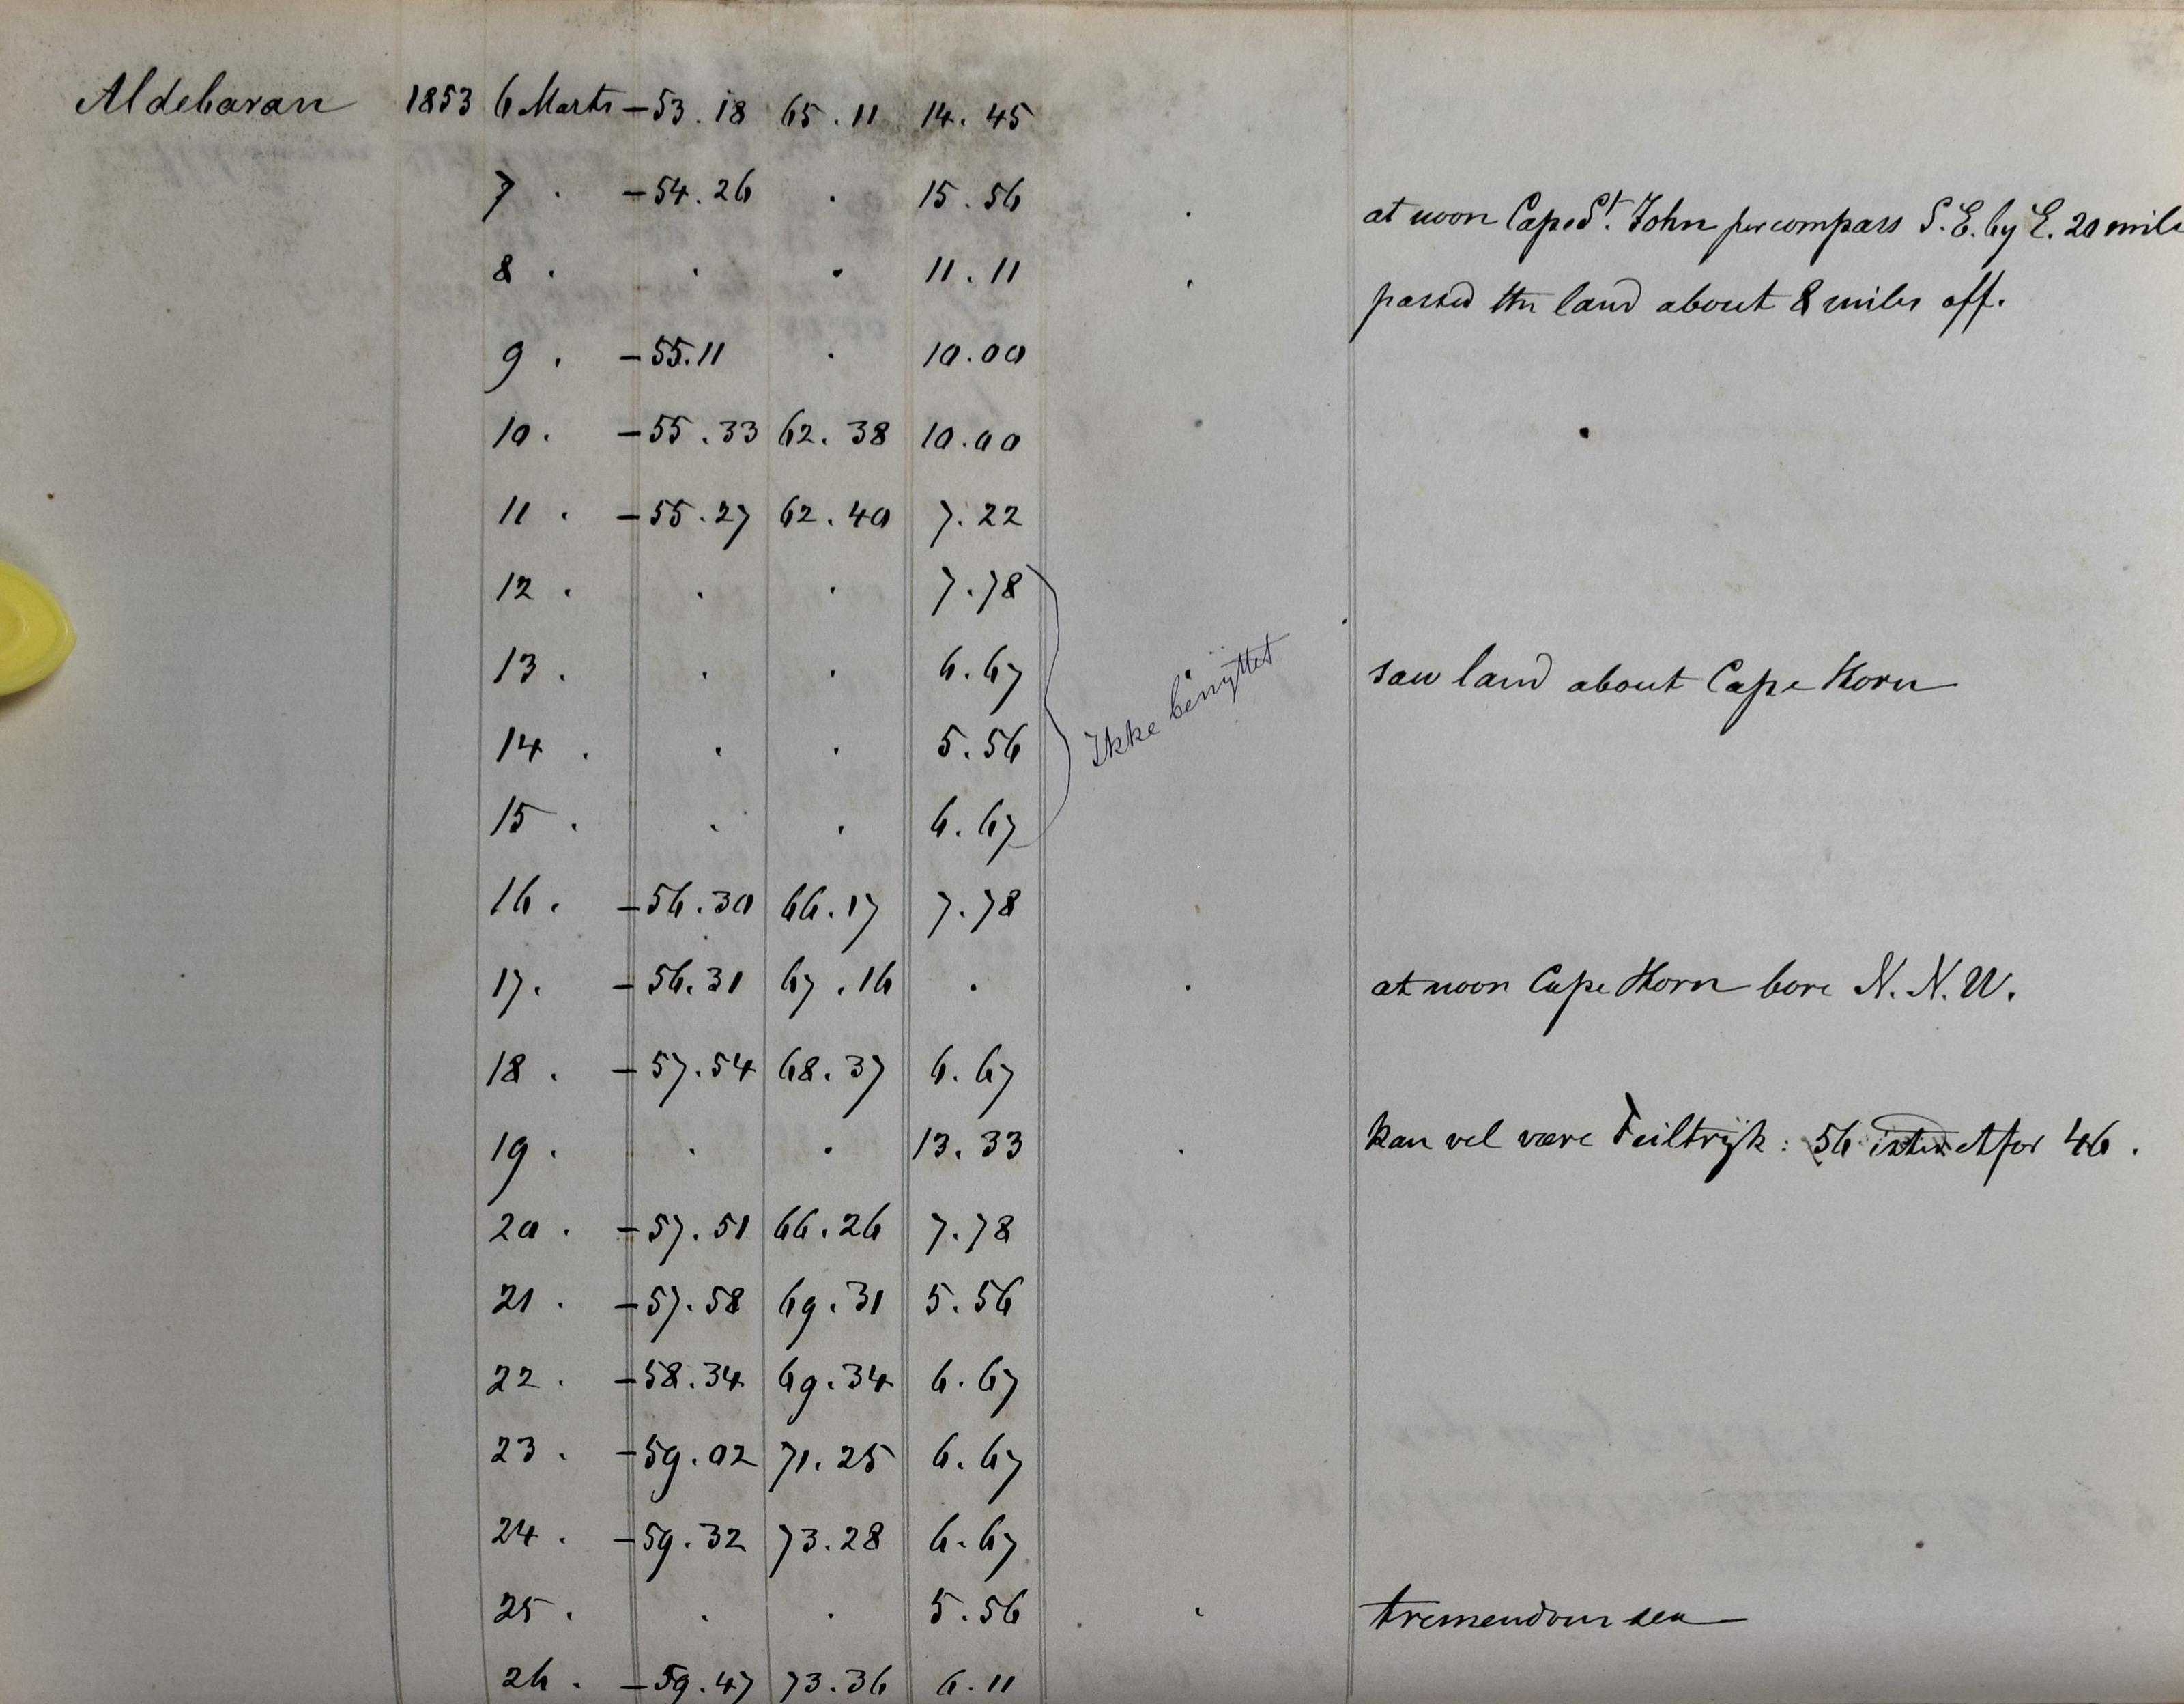 Aldebaran 1853 6 Marts -53.18 65.11 14.45
7 . -54.26 . 15.56 . at noon Cape St. John per compass S.E. by E. 20 mile
8 . . . 11.11 . passed the land about 8 miles off.
9 . -55.11 . 10.00
10 . -55.33 62.38 10.00 .
11 . -55.27 62.40 7.22
12 . . . 7.78
13 . . . 6.67 saw land about Cape Horn
Ikke benyttet
14 . . . 5.56
15 . . . 6.67
16 . -56.30 66.17 7.78
17 . -56.31 67.16 . . at noon Cape Horn bore N.N.W.
18 . -57.54 68.37 6.67
19 . . . 13.33 . kan vel være Feiltryk : 56 istedetfor 46 .
20 . -57.51 66.26 7.78
21 . -57.58 69.31 5.56
22 . -58.34 69.34 6.67
23 . -59.02 71.25 6.67
24 . -59.32 73.28 6.67
25 . . . 5.56 . tremendous sea
26 . -59.47 73.36 6.11